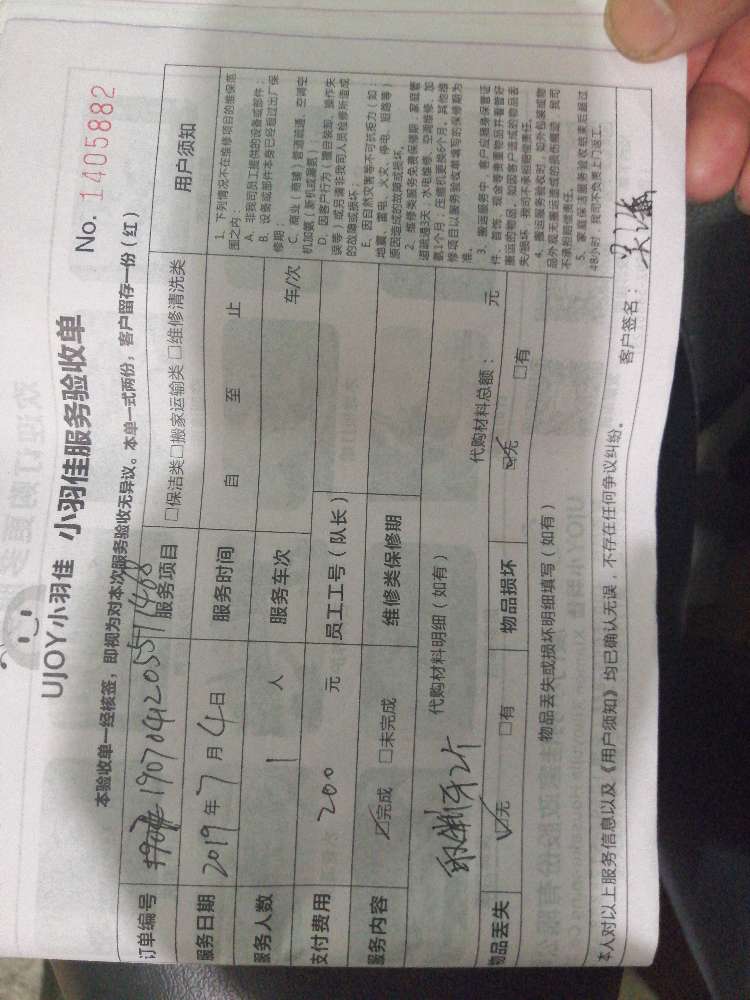 UJOY小羽佳 小羽佳服务验收单
No. 1405882
本验收单一经核签，即视为对本次服务验收无异议。本单一式两份，客户留存一份（红）
订单编号 1907041205571488
服务项目 □保洁类□搬家运输类 □维修清洗类
服务日期 2019年7月4日
服务时间 自 至 止
服务人数 1 人
服务车次 车/次
支付费用 200 元
员工工号（队长）
服务内容 ☑完成 □未完成
维修类保修期
代购材料明细（如有）
代购材料总额： 元
物品丢失 ☑无 □有
物品损坏 ☑无 □有
物品丢失或损坏明细填写（如有）
用户须知
1. 下列情况不在维修项目的维保范
围之内：
A. 非我司员工提供的设备或部件；
B. 设备或部件本身已经过出厂保
修期；
C. 商业（商铺）管道疏通、空调空
机加氨（新机或漏氨）；
D. 因客户行为（擅自装卸、操作失
误等）或另请非我司人员检修所造成
的故障或损坏；
E. 因自然灾害等不可抗拒力（如：
地震、雷电、火灾、停电、短路等）
原因造成的故障或损坏。
2. 维修类服务免费保修期：家庭管
道疏通3天；水电维修、空调维修、加
氨1个月；压缩机更换6个月；其他维
修项目以服务验收单填写的保修期为
准。
3. 搬运服务中，客户应随身保管证
件、首饰、现金等贵重物品并看管好
搬运的物品，如因客户造成的物品丢
失/损坏，我司不承担赔偿责任。
4. 搬运服务验收时，如外包装或物
品外观无搬运造成的损伤痕迹，我司
不承担赔偿责任。
5. 家庭保洁服务验收结束后超过
48小时，我司不负责上门返工。
本人对以上服务信息以及《用户须知》均已确认无误，不存在任何争议纠纷。
客户签名：